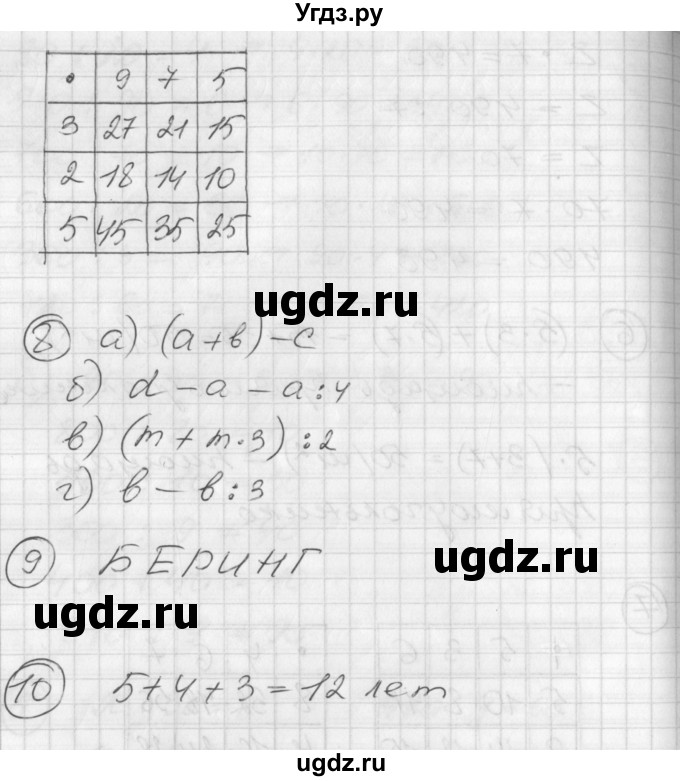 Угдз.ру
• 9 7 5
3 27 21 15
2 18 14 10
5 45 35 25
ugdz.ru
8 а) (а+в)-с
б) d-a-a:4
в) (m+m·3):2
г) в-в:3
9 БЕРИНГ
ugdz.ru
ugdz.ru
10 5+4+3=12 лет
ugdz.ru